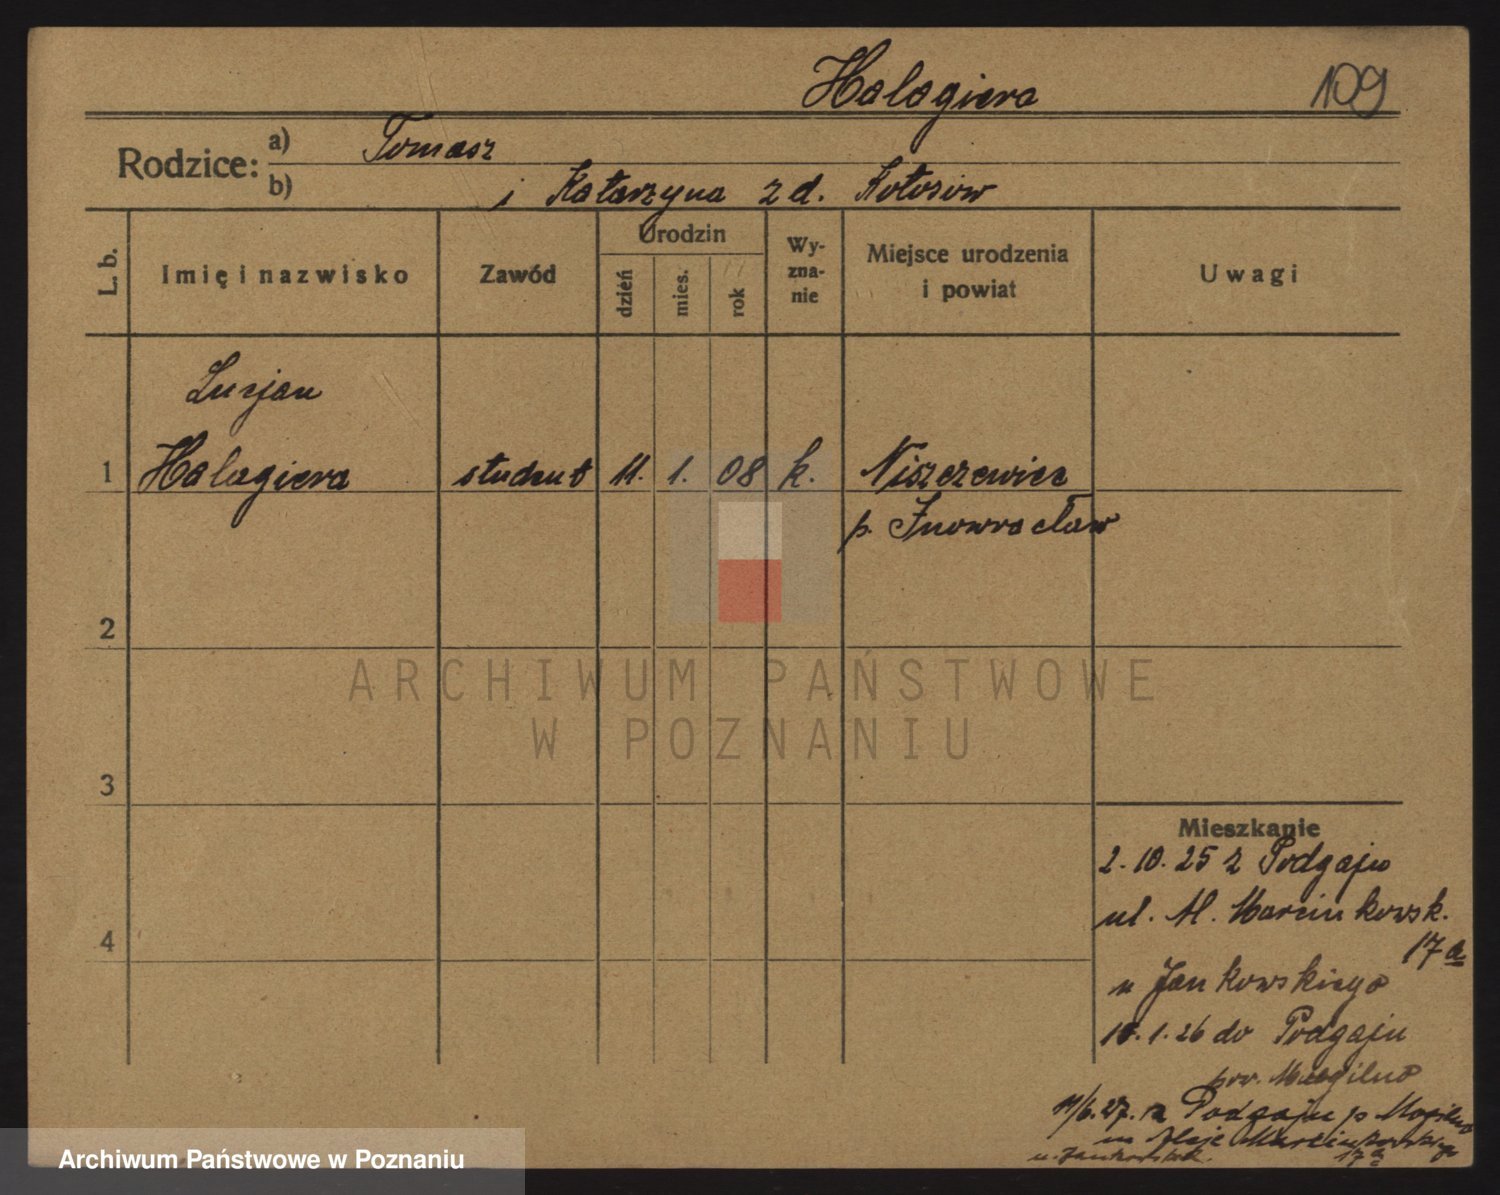 Halagiera 109
Rodzice: a) Tomasz
b) i Katarzyna z d. Kołosów
L. b. Imię i nazwisko Zawód Urodzin dzień mies. rok Wy-zna-nie Miejsce urodzenia i powiat Uwagi
Lucjan
1 Halagiera student 11. 1. 08 k. Niszczewice
p. Inowrocław
2
ARCHIWUM PAŃSTWOWE
W POZNANIU
3
Mieszkanie
2. 10. 25 z Podgaju
ul. M. Marcinkowsk.
4
17 a
u Jankowskiego
10. 1. 26 do Podgaju
pow. Mogilno
11/6. 27. z Podgaju p Mogilno
Marcinkowskiego
17 a
Archiwum Państwowe w Poznaniu